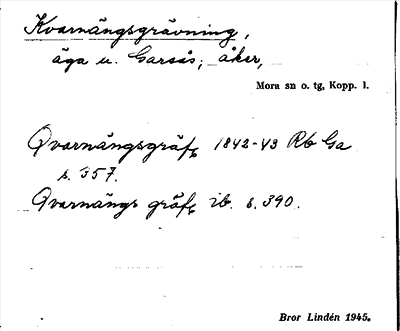 Kvarnängsgrävning,
äga u. Garsås; åker,
Mora sn o. tg, Kopp. l.
Qvarnängsgräfg 1842-43 Rb Ga
s. 357.
Qvarnängs gräfg ib. s. 390.
Bror Lindén 1945.